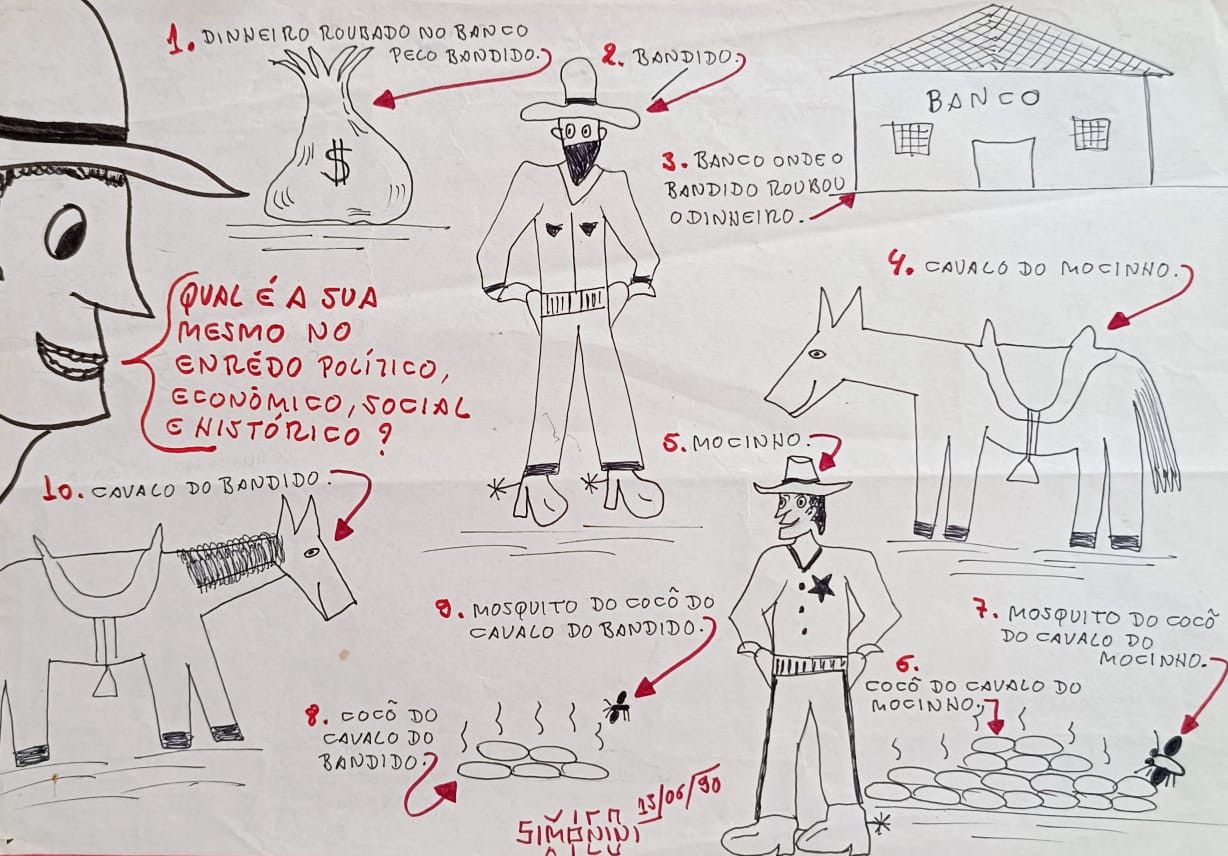 1. DINHEIRO ROUBADO NO BANCO
PELO BANDIDO.
$
2. BANDIDO.
BANCO
3. BANCO ONDE O
BANDIDO ROUBOU
O DINHEIRO.
4. CAVALO DO MOCINHO.
QUAL É A SUA
MESMO NO
ENRÊDO POLÍTICO,
ECONÔMICO, SOCIAL
E HISTÓRICO?
5. MOCINHO.
10. CAVALO DO BANDIDO.
9. MOSQUITO DO COCÔ DO
CAVALO DO BANDIDO.
7. MOSQUITO DO COCÔ
DO CAVALO DO
MOCINHO.
6.
COCÔ DO CAVALO DO
MOCINHO.
8. COCÔ DO
CAVALO DO
BANDIDO.
SIMONINI
15/06/90